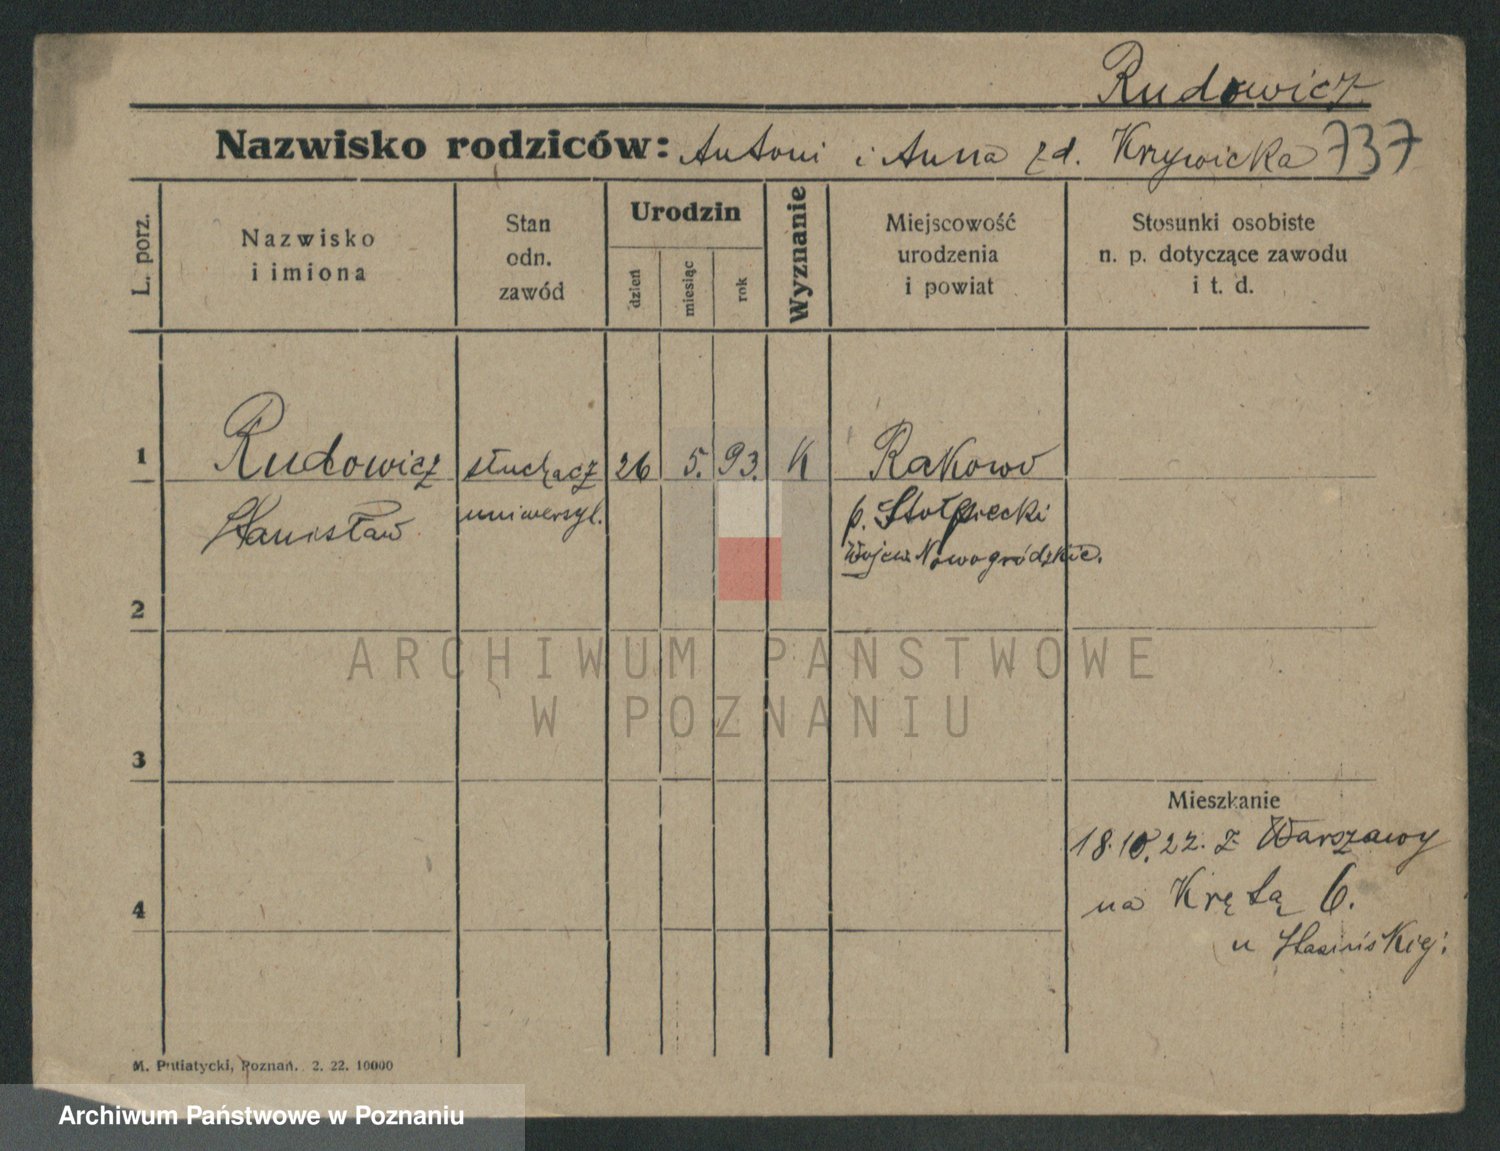 Rudowicz
Nazwisko rodziców: Antoni i Anna zd. Krzywicka 737
L. porz.
Nazwisko
i imiona
Stan
odn.
zawód
Urodzin
dzień
miesiąc
rok
Wyznanie
Miejscowość
urodzenia
i powiat
Stosunki osobiste
n. p. dotyczące zawodu
i t. d.
1 Rudowicz słuchacz 26 5. 93. K Rakowo
Stanisław uniwersyt. p. Stołpiecki
Wojew. Nowogródzkie.
2
3
Mieszkanie
18.10.22. z Warszawy
4 na Krętą 6.
u
ARCHIWUM PAŃSTWOWE
W POZNANIU
M. Putiatycki, Poznań. 2. 22. 10000
Archiwum Państwowe w Poznaniu